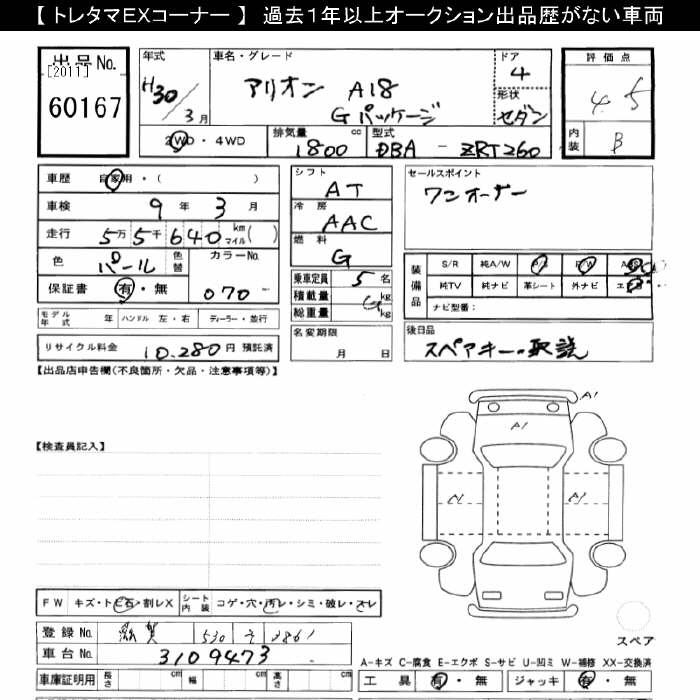 【 トレタマEXコーナー 】 過去1年以上オークション出品歴がない車両
出品No.
[2011]
60167
年式
H30
3月
車名・グレード
アリオン A18
Gパッケージ
ドア
4
形状
セダン
2WD・4WD
排気量
1800 cc
型式
DBA - ZRT260
評価点
4.5
内装
B
車歴 自家用・( )
車検 9年 3月
走行 5万5千640 km マイル( )
色 パール 色替
カラーNo.
070
保証書 有・無
モデル年式 年 ハンドル 左・右 ディーラー・並行
リサイクル料金 10.280円 預託済
シフト
AT
冷房
AAC
燃料
G
乗車定員 5名
積載量 kg
総重量 kg
名変期限
月 日
セールスポイント
ワンオーナー
装備品
S/R 純A/W P/S P/W ABS
純TV 純ナビ 革シート 外ナビ
ナビ型番:
後日品
スペアキー・取説
【出品店申告欄(不良箇所・欠品・注意事項等)】
【検査員記入】
A1
A1
A1
FW キズ・トビ石・割レX
シート内装 コゲ・穴・汚レ・シミ・破レ・スレ
登録No. 滋賀 530
車台No. 3109473
車庫証明用 長さ cm 幅 cm 高さ cm
スペア
A-キズ C-腐食 E-エクボ S-サビ U-凹ミ W-補修 XX-交換済
工具 有・無 ジャッキ 有・無